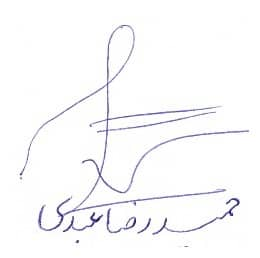 حمیدرضا عبدی